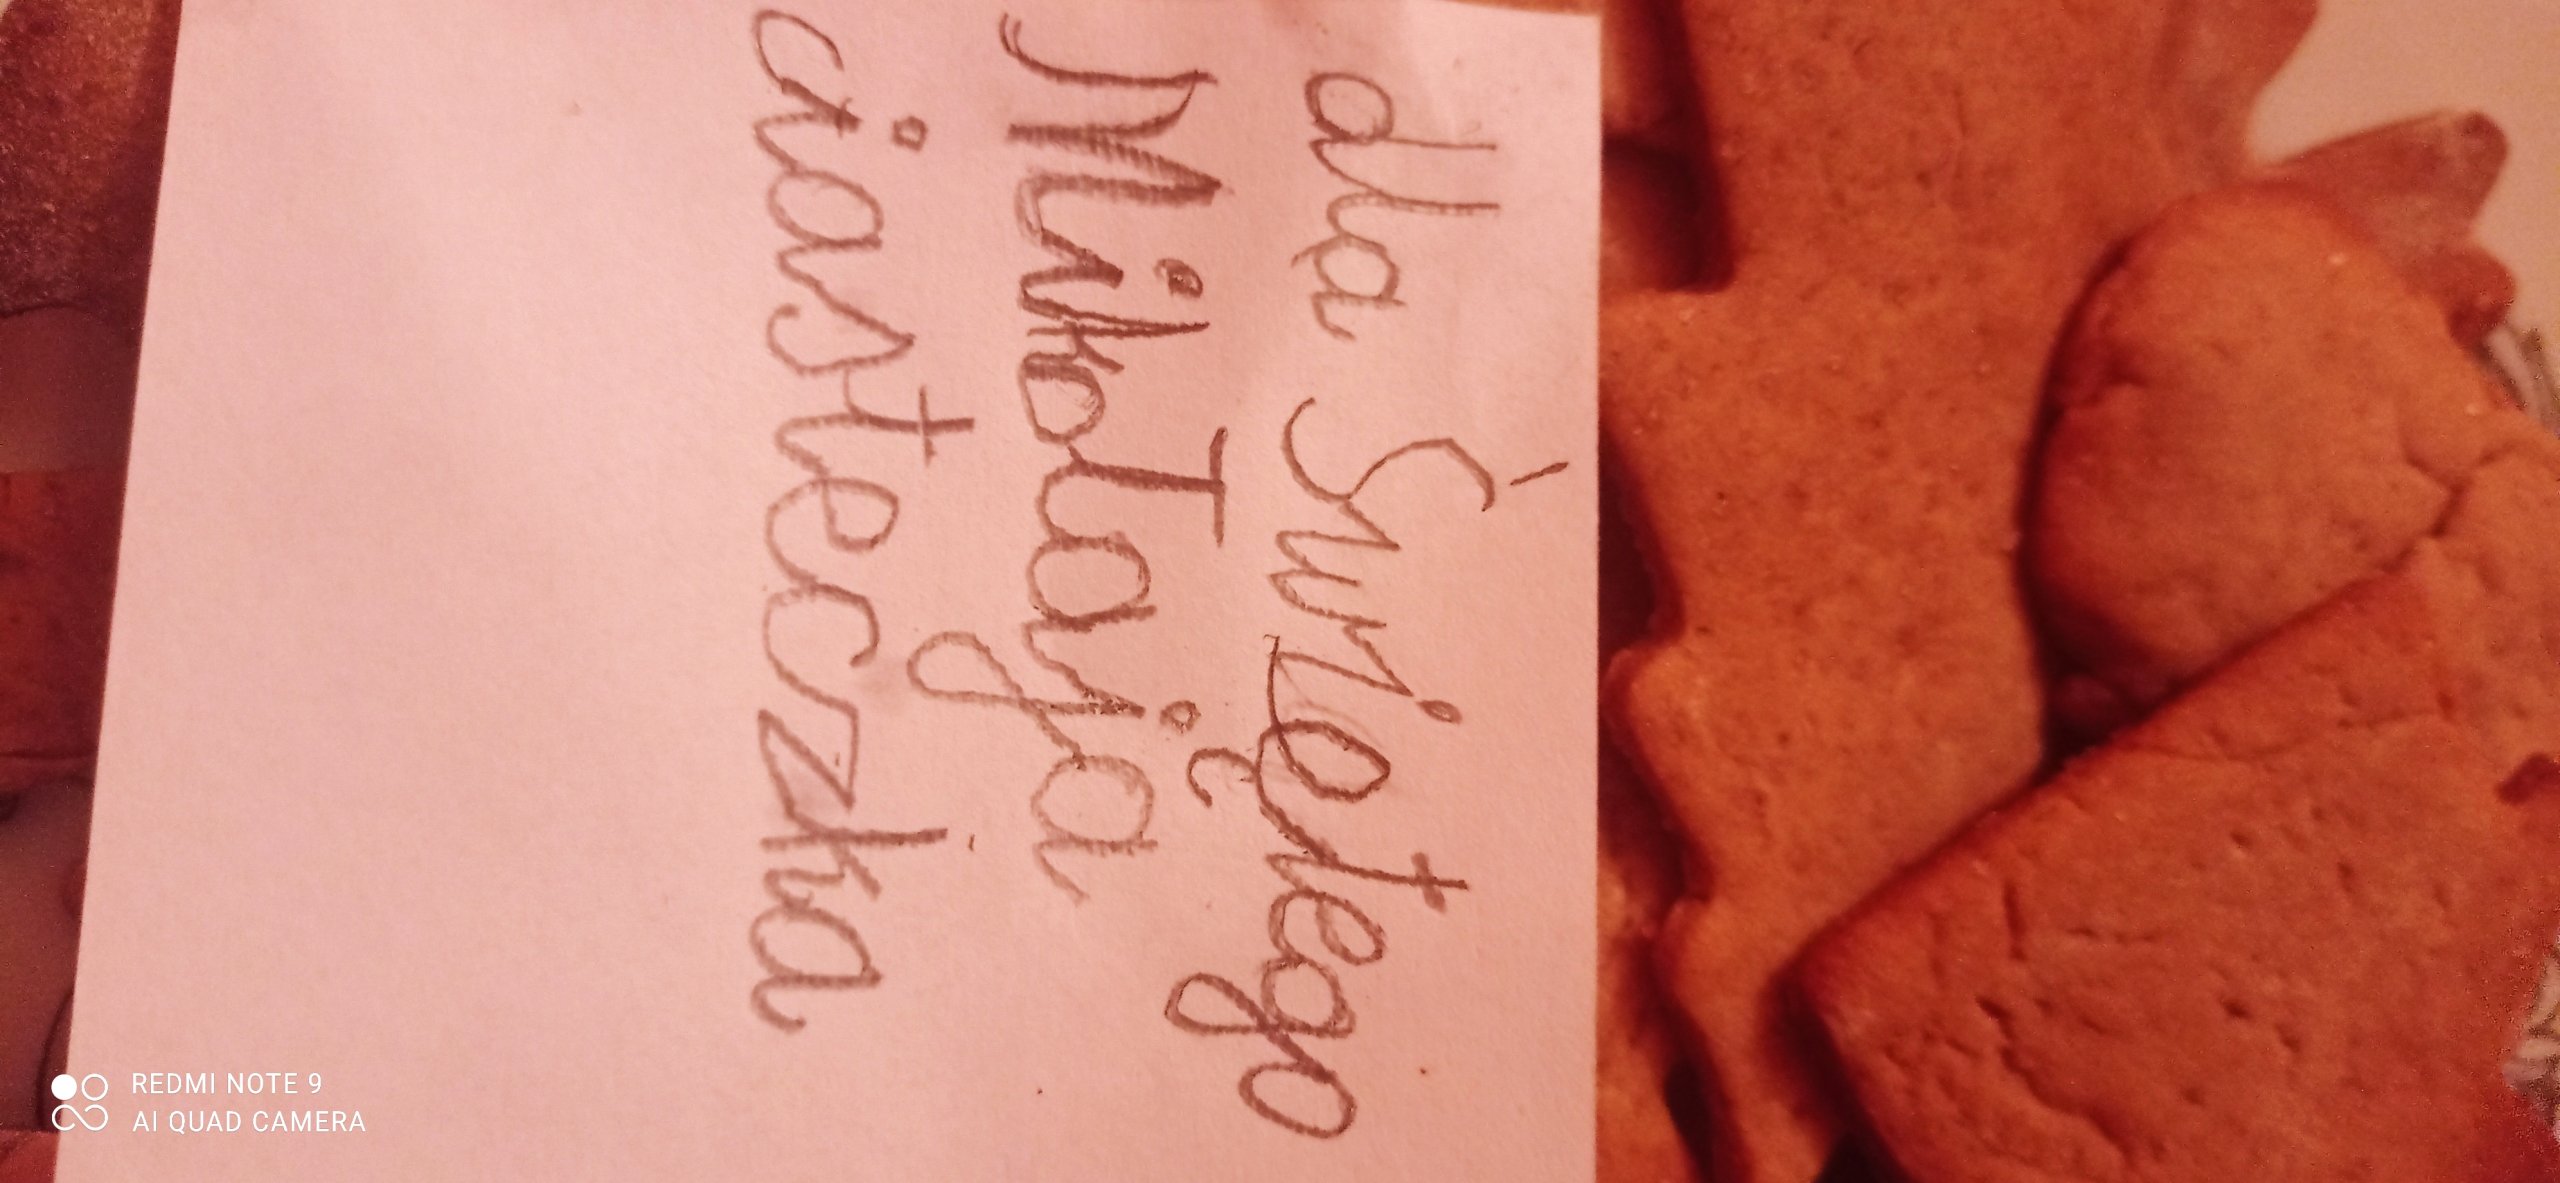 dla Świętego
Mikołaja
ciasteczka
REDMI NOTE 9
AI QUAD CAMERA